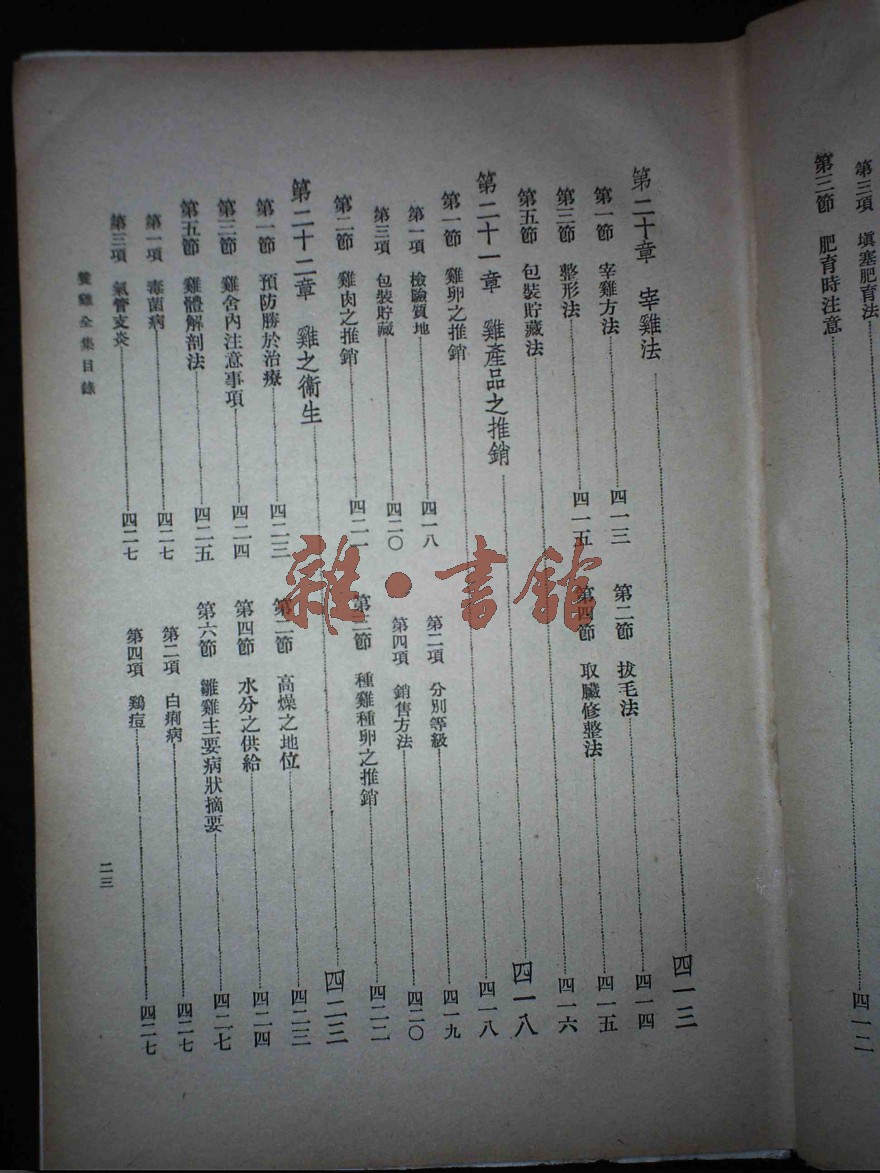 第三項 塡塞肥育法
第三節 肥育時注意
四一二
第二十章 宰雞法 四一三
第一節 宰雞方法 四一三
第二節 拔毛法 四一四
第三節 整形法 四一五
第四節 取臟修整法 四一五
第五節 包裝貯藏法 四一六
第二十一章 雞產品之推銷 四一八
第一節 雞卵之推銷 四一八
第一項 檢驗質地 四一八
第二項 分別等級 四一九
第三項 包裝貯藏 四二〇
第四項 銷售方法 四二〇
第二節 雞肉之推銷 四二一
第三節 種雞種卵之推銷 四二二
第二十二章 雞之衞生 四二三
第一節 預防勝於治療 四二三
第二節 高燥之地位 四二三
第三節 雞舍內注意事項 四二四
第四節 水分之供給 四二四
第五節 雞體解剖法 四二五
第六節 雛雞主要病狀摘要 四二七
第一項 毒菌病 四二七
第二項 白痢病 四二七
第三項 氣管支炎 四二七
第四項 鷄痘 四二七
養雞全集目錄
二三
雜·書館